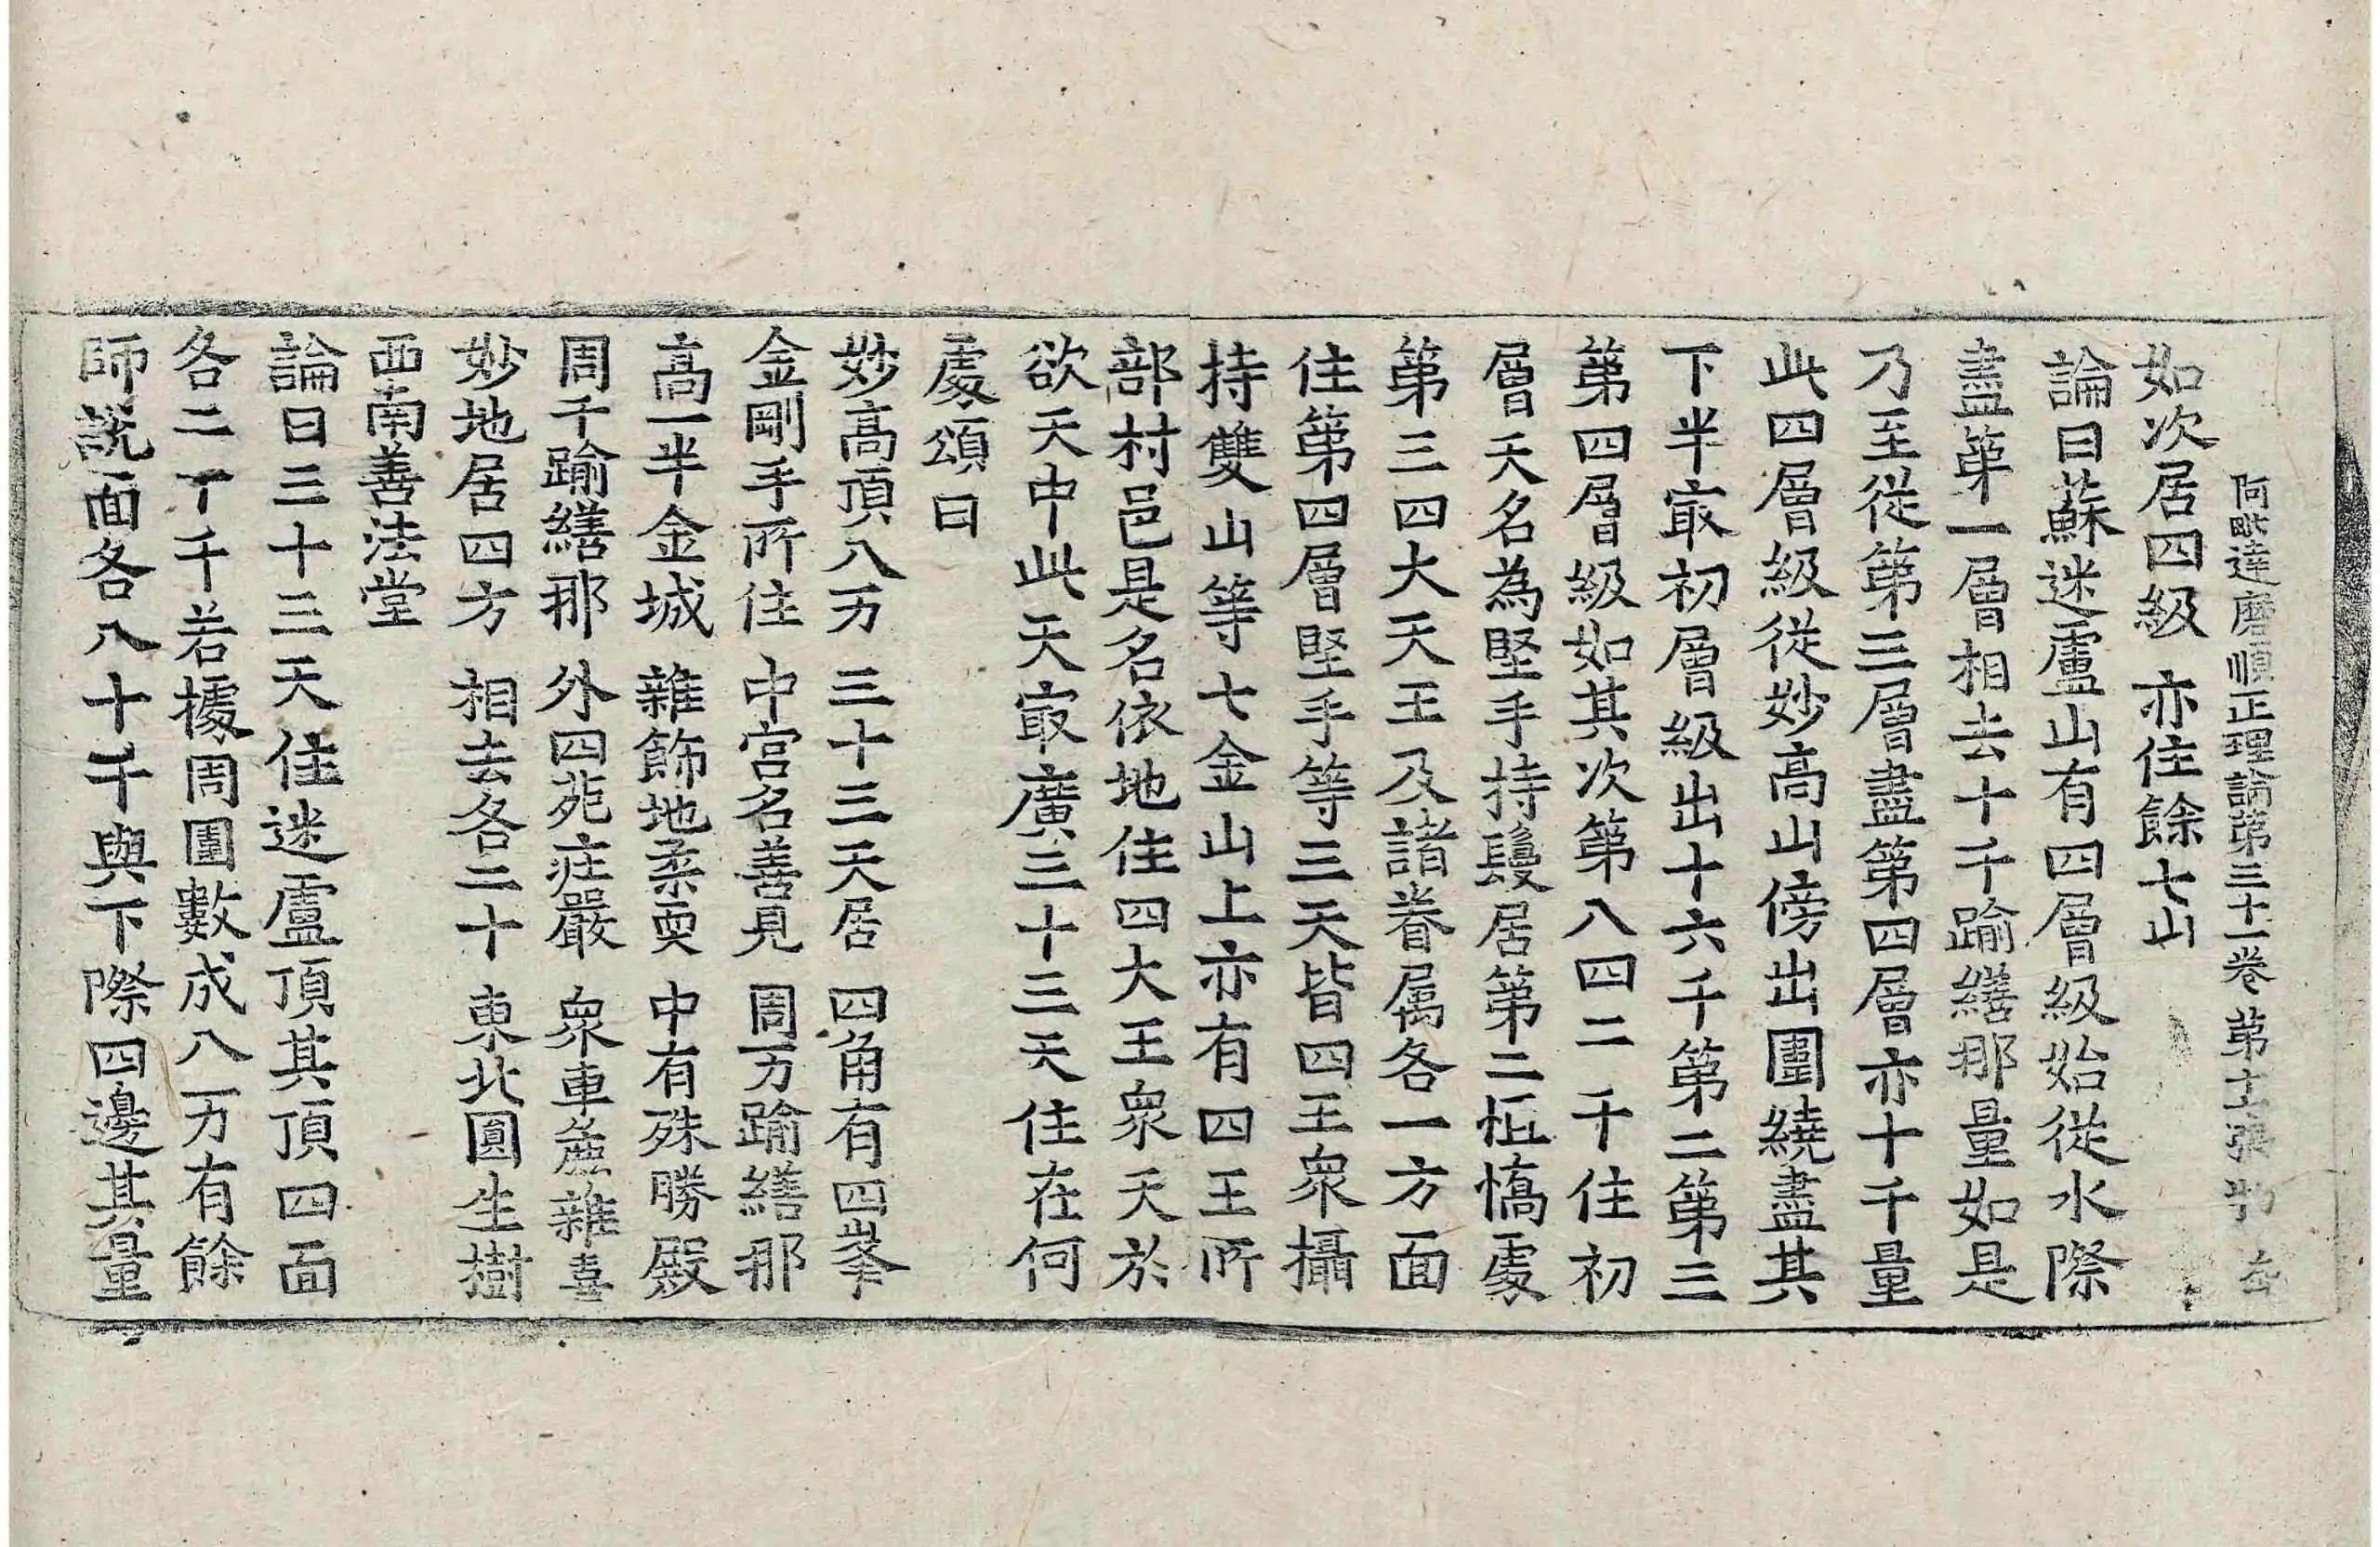 阿毗達磨順正理論第三十一卷 第十張 物
如次居四級 亦住餘七山
論曰蘇迷盧山有四層級始從水際
盡第一層相去十千踰繕那量如是
乃至從第三層盡第四層亦十千量
此四層級從妙高山傍出圍繞盡其
下半㝡初層級出十六千第二第三
第四層級如其次第八四二千住初
層天名為堅手持鬘居第二恒憍處
第三四大天王及諸眷属各一方面
住第四層堅手等三天皆四王衆攝
持雙山等七金山上亦有四王所
部村邑是名依地住四大王衆天於
欲天中此天㝡廣三十三天住在何
處頌曰
妙高頂八万 三十三天居 四角有四峯
金剛手所住 中宮名善見 周万踰繕那
高一半金城 雜飾地柔耎 中有殊勝殿
周千踰繕那 外四苑莊嚴 衆車麁雜喜
妙地居四方 相去各二十 東北圓生樹
西南善法堂
論曰三十三天住迷盧頂其頂四面
各二十千若據周圍數成八万有餘
師說面各八十千與下際四邊其量